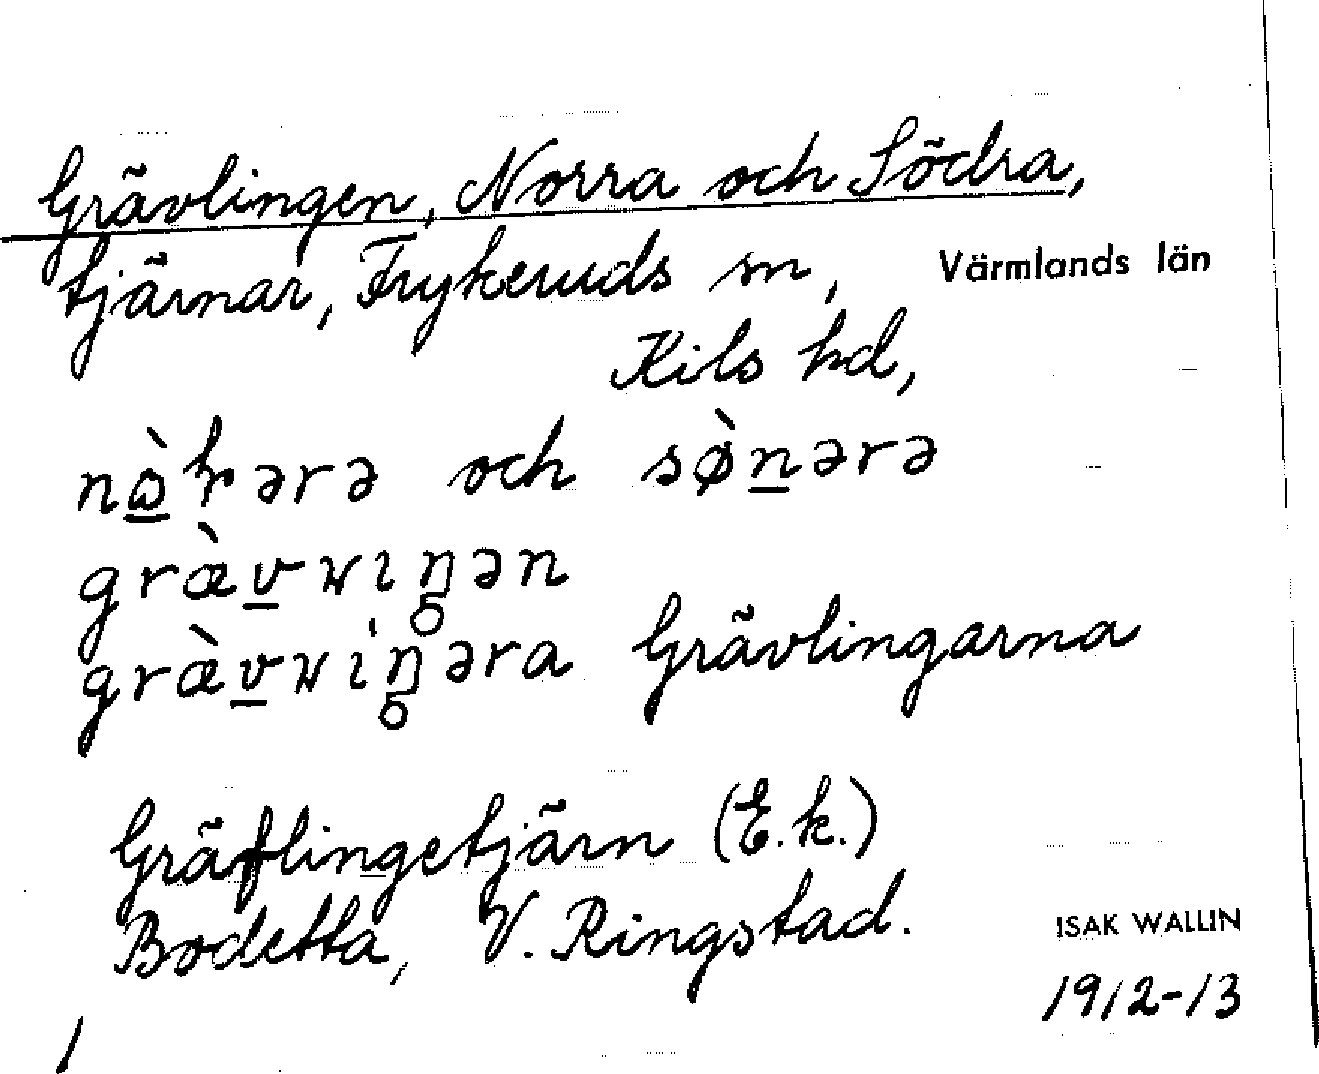 Grävlingen, Norra och Södra,
tjärnar, Frykeruds sn, Värmlands län
Kils hd,
nòrərə och sø̀nərə
græ̀vwıŋən
græ̀vwıŋəra Grävlingarna
Gräflingetjärn (E.k.)
Bodetta, V. Ringstad.
ISAK WALLIN
1912-13
1